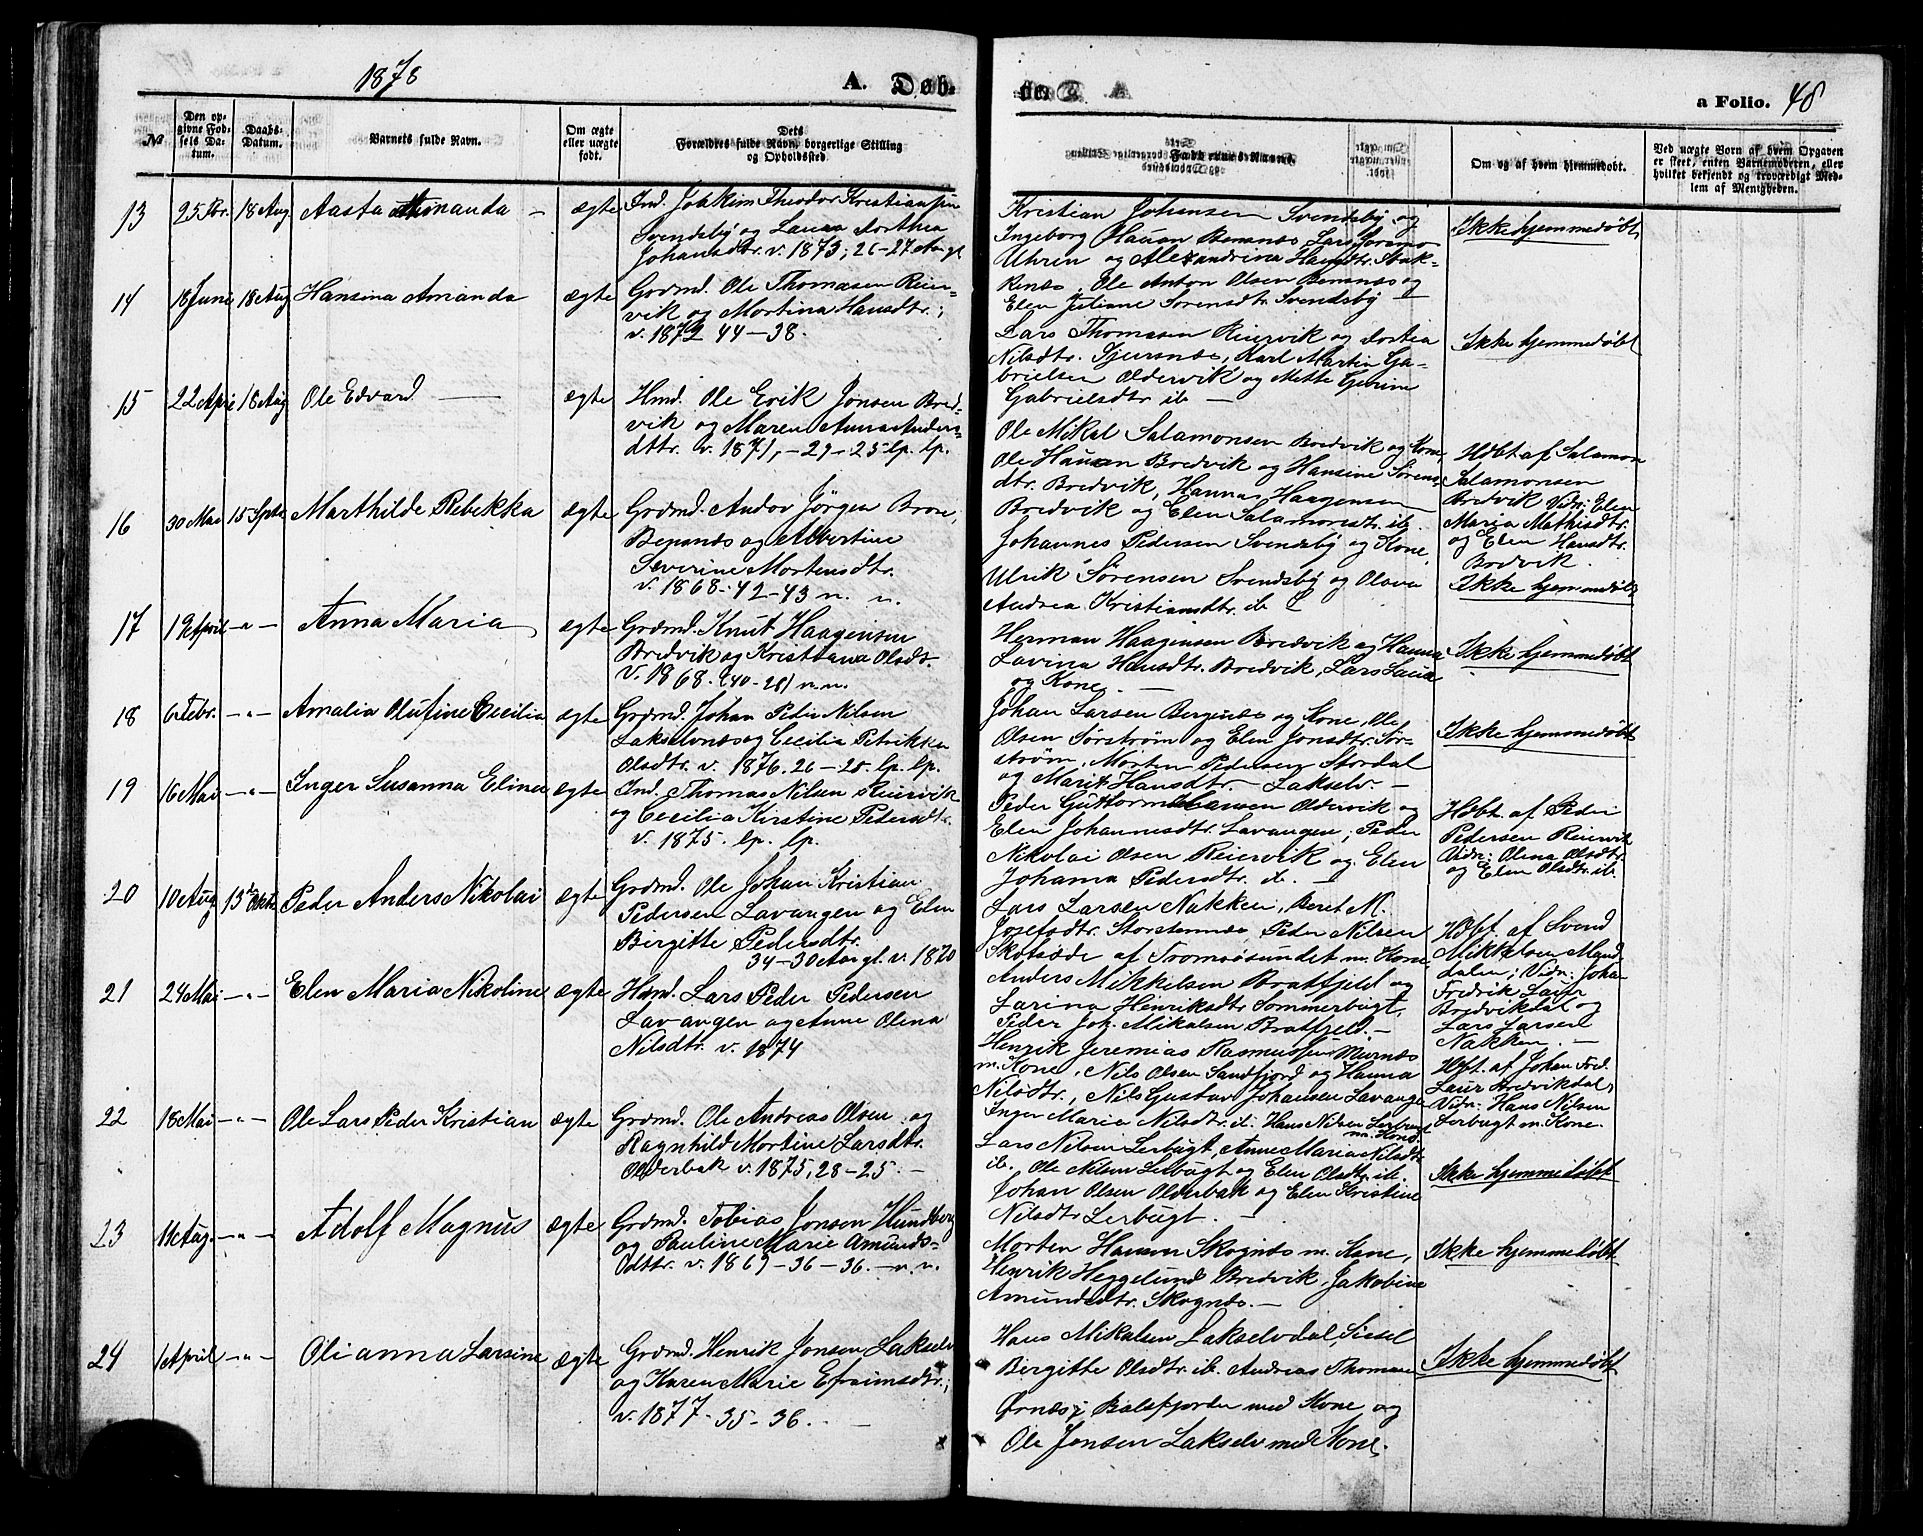 1878
A. Døb-
te.
a Folio. 48
№
Den op-
givne Fød-
sels Da-
tum.
Daabs-
Datum.
Barnets fulde Navn.
Om ægte
eller uægte
født.
Dets
Forældres fulde Navn, borgerlige Stilling
og Opholdssted.
Faddernes Navne.
Om og af hvem hjemmedøbt.
Ved uægte Børn af hvem Opgaven
er skeet, enten Barnemoderen, eller
hvilket bekjendt og troværdigt Med-
lem af Menigheden.
13 25 18 Aug Aasta Amanda ægte
Ind. Joakim Theodor Kristiansen
Svendsby og Laura Dorthea
Johansdtr. v. 1873; 26-27 Aar gl
Kristian Johansen Svendsby og
Ingeborg Hansen Bensnes, Lars
Uhren og Alexandrina Hansdtr. Stak-
kenæs, Ole Anton Olsen Bensnæs og
Elen Juliane Sørensdtr. Svendsby
Ikke hjemmedøbt
14 18 Juni 18 Aug Hansina Amanda ægte
Grdmd. Ole Thomasen Reier-
vik og Mortina Hansdtr.;
v. 1872 44-38.
Lars Thomasen Reiervik og Dortea
Nilsdtr. Sjursnæs, Karl Martin Ga-
brielsen Oldervik og Mette
Gabrielsdtr ib —
Ikke hjemmedøbt
15 22 April 18 Aug Ole Edvard — ægte
Hmd. Ole Erik Jonsen Bred-
vik og Maren Anna Anders-
dttr. v. 1871, -29-25 lp. lp.
Ole Mikal Salamonsen Bredvik og Kone,
Ole Hansen Bredvik og Hansine Sørens-
dtr. Bredvik, Hannas Haagensen
Bredvik og Elen Salamonsdtr. ib.
Hdbt af Salamon
Salamonsen
Bredvik Vidn: Elen
Maria Mathisdtr.
og Elen Hansdtr.
Bredvik.
16 30 Mai 15 Septb Marthilde Rebekka ægte
Grdmd. Andor Jörgen Brose,
Bensnæs og Albertine
Severine Mortensdtr.
v. 1868. 42-43 n. n.
Johannes Pedersen Svendsby og Kone,
Ulrik Sørensen Svendsby og Olava
Andrea Kristiansdtr. ib
Ikke hjemmedøbt
17 19 April - " - Anna Maria ægte
Grdmd. Knut Haagensen
Bredvik og Kristiana Olsdtr.
v. 1868. (40-28) n.n.
Herman Haagensen Bredvik og Hanna
Lavina Hansdtr. Bredvik, Lars Laur
og Kone. —
Ikke hjemmedøbt
18 6 Febr. - " - Amalia Olufine Cecilia ægte
Grdmd. Johan Peder Nilsen
Lakselvnæs og Cecilia Petrikka
Olsdtr. v. 1876. 26-28. lp. lp.
Johan Larsen Bergnæs og Kone, Ole
Olsen Sørstrøm og Elen Jonsdtr. Sør-
strøm, Morten Pedersen Stordal
og Marit Hansdtr. - Lakselv. —
Ikke hjemmedøbt
19 16 Mai - " - Inger Susanna Elina ægte
Ind. Thomas Nilsen Reiervik
og Cecilia Kirstine Pedersdtr.
v. 1875. lp. lp.
Peder Guttorm Hansen Oldervik og
Elen Johannesdtr. Lavangen; Peder
Nikolai Olsen Reiervik og Elen
Johanna Pedersdtr. ib. —
Hdbt. af Peder
Pedersen Reiervik
Vidn: Olena Olsdtr.
og Elen Olsdtr. ib.
20 10 Aug 13de Oktb Peder Anders Nikolai ægte
Grdmd. Ole Johan Kristian
Pedersen Lavangen og Elen
Birgitte Pedersdtr.
34-30 Aar gl. v. 1870
Lars Larsen Nakken, Beret M.
Josefsdtr. Storstennæs, Peder Nilsen
Skotsæde af Tromsøsundet m. Kone,
Anders Mikkelsen Bratfjeld og
Larina Henriksdtr Sommerbugt,
Peder Joh. Mikalsen Bratfjeld. —
Hdbt. af Svend
Mikkelsen Mand
dalen; Vidn: Johan
Fredrik Laur
Bredvikdal og
Lars Larsen
Nakken. —
21 24 Mai - " - Elen Maria Nikoline ægte
Hmd. Lars Peder Pedersen
Lavangen og Anne Olena
Nilsdtr. v. 1874
Henrik Jeremias Rasmussen
m. Kone, Nils Olsen Sandfjord og Hanna
Nilsdtr., Nils Gustav Johansen Lavangen
Inger Maria Nilsdtr. ib. Hans Nilsen Lerbugt
m. Kone.
Hdbt. af Johan Fred.
Laur Bredvikdal,
Vidn: Hans Nilsen
Lerbugt m. Kone.
22 18 Mai - " - Ole Lars Peder Kristian ægte
Grdmd. Ole Andreas Olsen og
Ragnhild Mortine Larsdtr.
Olderbak v. 1875, 28-25. —
Lars Nilsen Lerbugt, Anne Maria Nilsdtr
ib. Ole Nilsen Lerbugt og Elen Olsdtr. ib.
Johan Olsen Olderbak og Elen Kristine
Nilsdtr Lerbugt. —
Ikke hjemmedøbt
23 11 Aug. - " - Adolf Magnus ægte
Grdmd. Tobias Jonsen Hundberg
og Pauline Marie Amunds-
dttr. v. 1869-36-36. - n. n.
Morten Hansen Skognæs m. Kone,
Henrik Heggelund Bredvik, Jakobine
Amundsdtr. Skognæs. —
Ikke hjemmedøbt
24 1 April - " - Olianna Larsine ægte
Grdmd. Henrik Jonsen Lakselv
og Karen Marie Efraimsdtr.;
v. 1877-35-36. —
Hans Mikalsen Lakselvdal, Sissel
Bergitte Olsdtr. ib. Andreas Thomasen
Ørnæs i Balsfjorden med Kone og
Ole Jonsen Lakselv med Kone.
Ikke hjemmedøbt